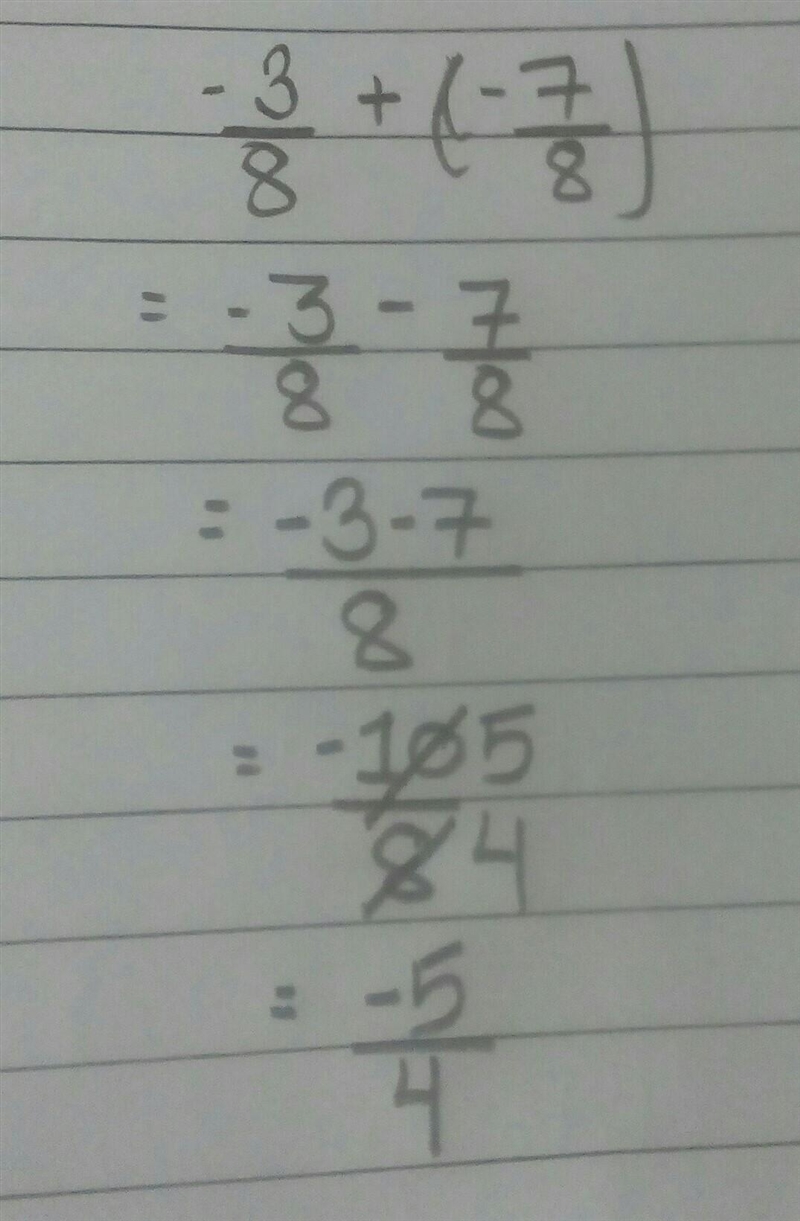 -3/8 + (-7/8)
= -3/8 - 7/8
= -3-7/8
= -10 5/8 4
= -5/4